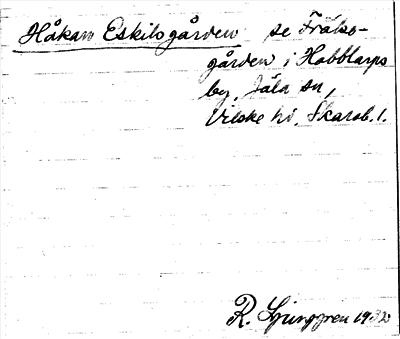 Håkan Eskilsgården se Frälse-
gården i Habblarps
by, Jäla sn,
Vilske hd, Skarab. l.
R. Ljunggren 1932